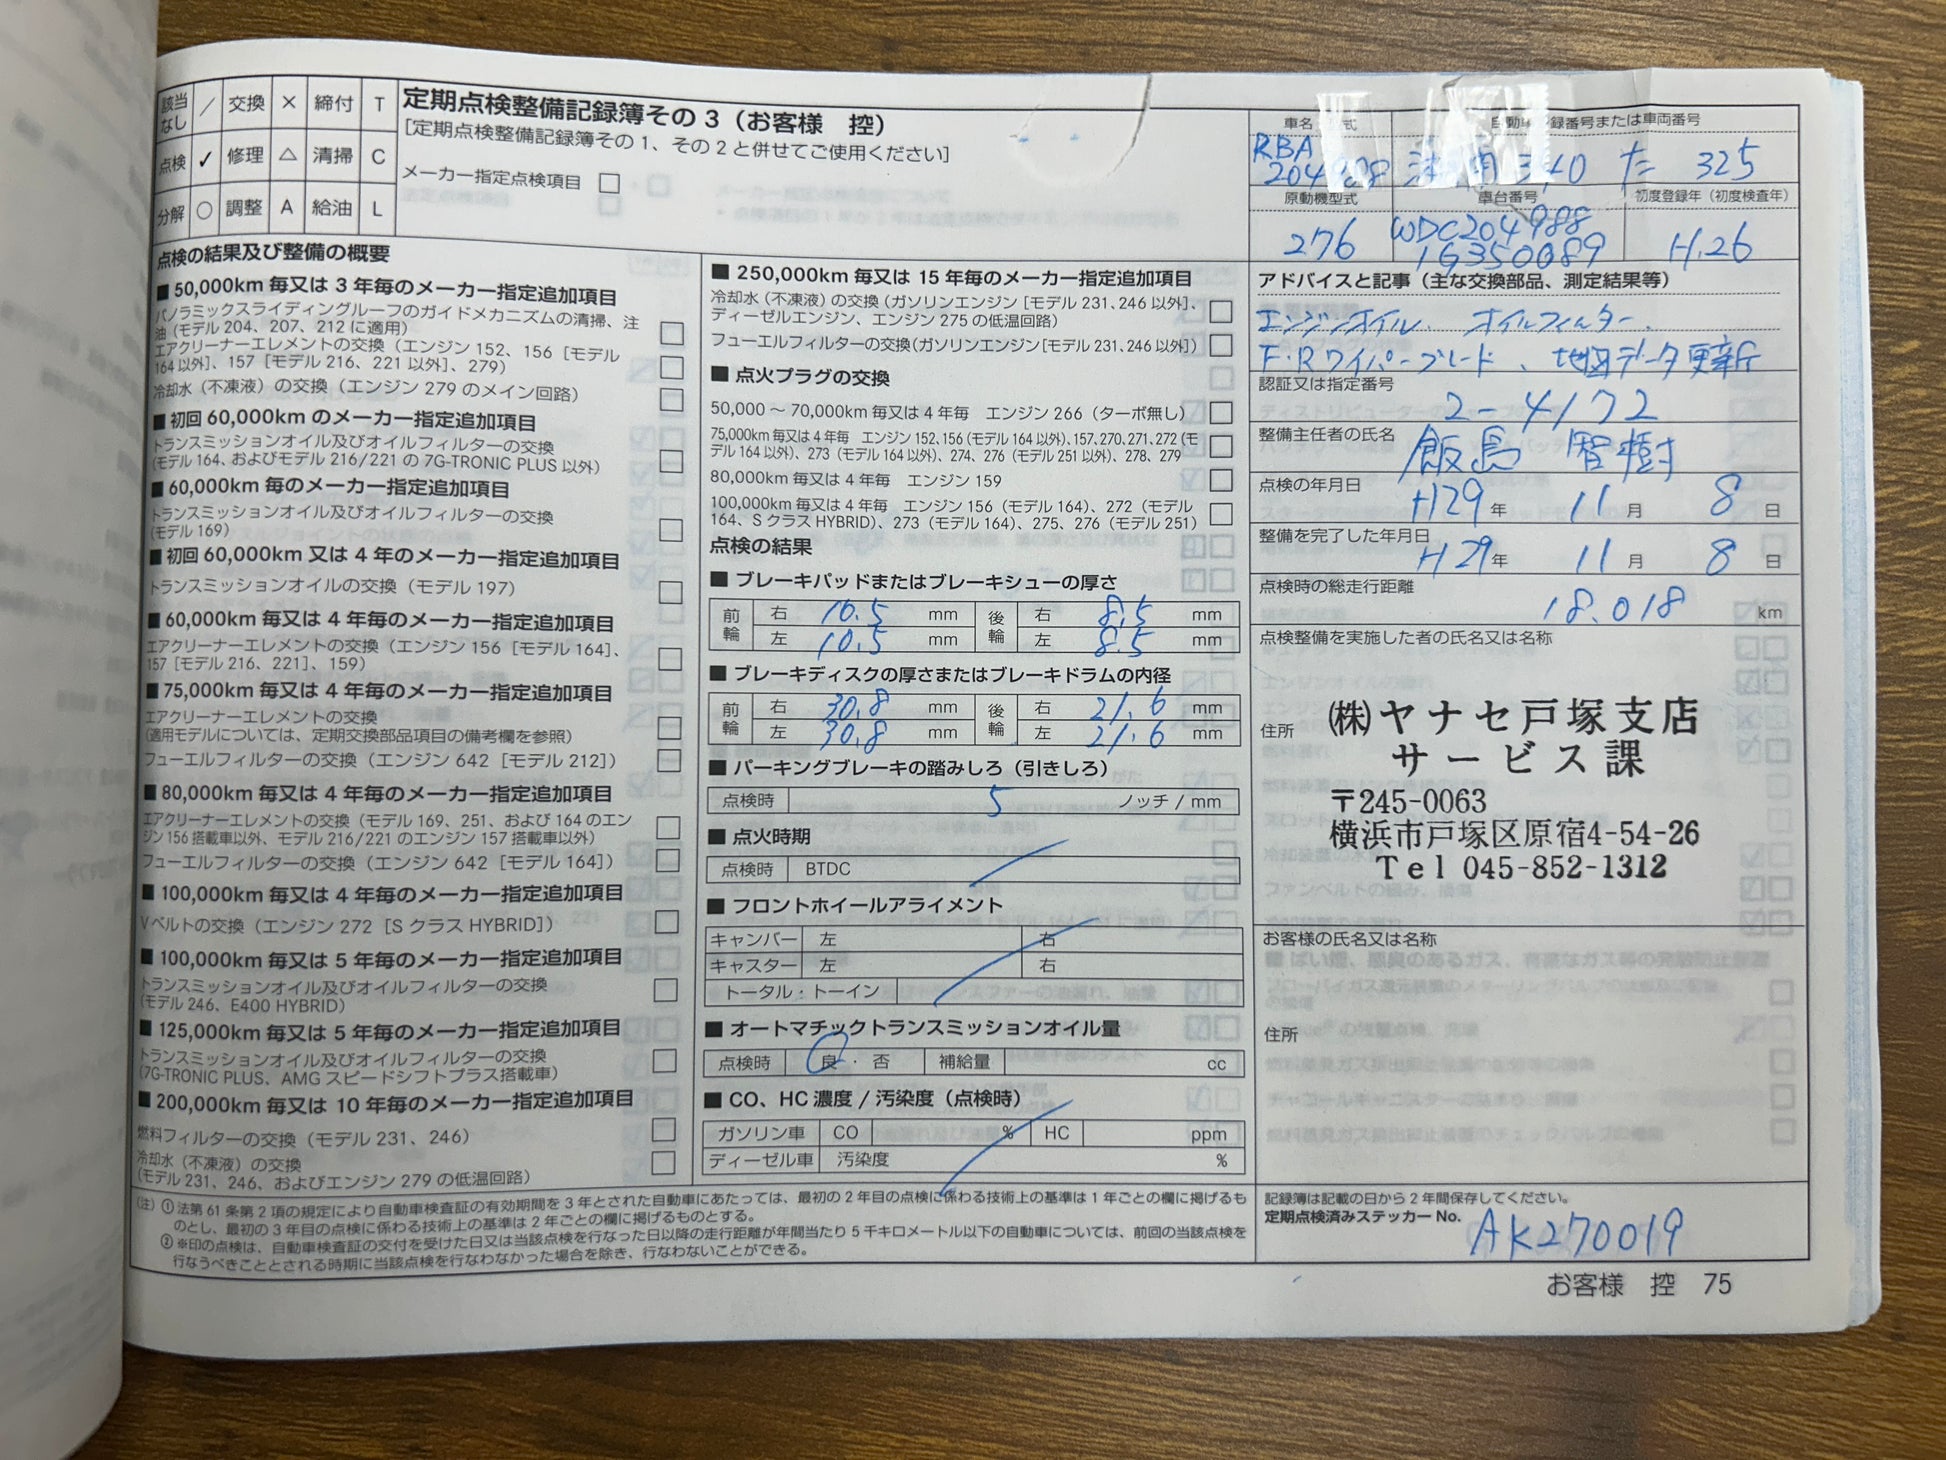 該当なし ／ 交換 × 締付 T
点検 ✓ 修理 △ 清掃 C
分解 ○ 調整 A 給油 L
定期点検整備記録簿その3（お客様 控）
［定期点検整備記録簿その1、その2と併せてご使用ください］
メーカー指定点検項目 □
点検の結果及び整備の概要
■ 50,000km 毎又は 3 年毎のメーカー指定追加項目
パノラミックスライディングルーフのガイドメカニズムの清掃、注
油（モデル 204、207、212 に適用） □
エアクリーナーエレメントの交換（エンジン 152、156［モデル
164 以外］、157［モデル 216、221 以外］、279） □
冷却水（不凍液）の交換（エンジン 279 のメイン回路） □
■ 初回 60,000km のメーカー指定追加項目
トランスミッションオイル及びオイルフィルターの交換
（モデル 164、およびモデル 216/221 の 7G-TRONIC PLUS 以外） □
■ 60,000km 毎のメーカー指定追加項目
トランスミッションオイル及びオイルフィルターの交換
（モデル 169） □
■ 初回 60,000km 又は 4 年のメーカー指定追加項目
トランスミッションオイルの交換（モデル 197） □
■ 60,000km 毎又は 4 年毎のメーカー指定追加項目
エアクリーナーエレメントの交換（エンジン 156［モデル 164］、
157［モデル 216、221］、159） □
■ 75,000km 毎又は 4 年毎のメーカー指定追加項目
エアクリーナーエレメントの交換
（適用モデルについては、定期交換部品項目の備考欄を参照） □
フューエルフィルターの交換（エンジン 642［モデル 212］） □
■ 80,000km 毎又は 4 年毎のメーカー指定追加項目
エアクリーナーエレメントの交換（モデル 169、251、および 164 のエン
ジン 156 搭載車以外、モデル 216/221 のエンジン 157 搭載車以外） □
フューエルフィルターの交換（エンジン 642［モデル 164］） □
■ 100,000km 毎又は 4 年毎のメーカー指定追加項目
V ベルトの交換（エンジン 272［S クラス HYBRID］） □
■ 100,000km 毎又は 5 年毎のメーカー指定追加項目
トランスミッションオイル及びオイルフィルターの交換
（モデル 246、E400 HYBRID） □
■ 125,000km 毎又は 5 年毎のメーカー指定追加項目
トランスミッションオイル及びオイルフィルターの交換
（7G-TRONIC PLUS、AMG スピードシフトプラス搭載車） □
■ 200,000km 毎又は 10 年毎のメーカー指定追加項目
燃料フィルターの交換（モデル 231、246） □
冷却水（不凍液）の交換
（モデル 231、246、およびエンジン 279 の低温回路） □
■ 250,000km 毎又は 15 年毎のメーカー指定追加項目
冷却水（不凍液）の交換（ガソリンエンジン［モデル 231、246 以外］、
ディーゼルエンジン、エンジン 275 の低温回路） □
フューエルフィルターの交換（ガソリンエンジン［モデル 231、246 以外］） □
■ 点火プラグの交換
50,000 ～ 70,000km 毎又は 4 年毎 エンジン 266（ターボ無し） □
75,000km 毎又は 4 年毎 エンジン 152、156（モデル 164 以外）、157、270、271、272（モ
デル 164 以外）、273（モデル 164 以外）、274、276（モデル 251 以外）、278、279 □
80,000km 毎又は 4 年毎 エンジン 159 □
100,000km 毎又は 4 年毎 エンジン 156（モデル 164）、272（モデル
164、S クラス HYBRID）、273（モデル 164）、275、276（モデル 251） □
点検の結果
■ ブレーキパッドまたはブレーキシューの厚さ
前輪 右 10.5 mm 後輪 右 8.5 mm
左 10.5 mm 左 8.5 mm
■ ブレーキディスクの厚さまたはブレーキドラムの内径
前輪 右 30.8 mm 後輪 右 21.6 mm
左 30.8 mm 左 21.6 mm
■ パーキングブレーキの踏みしろ（引きしろ）
点検時 5 ノッチ / mm
■ 点火時期
点検時 BTDC
■ フロントホイールアライメント
キャンバー 左 右
キャスター 左 右
トータル・トーイン
■ オートマチックトランスミッションオイル量
点検時 良・否 補給量 cc
■ CO、HC 濃度 / 汚染度（点検時）
ガソリン車 CO % HC ppm
ディーゼル車 汚染度 %
（注）① 法第 61 条第 2 項の規定により自動車検査証の有効期間を 3 年とされた自動車にあたっては、最初の 2 年目の点検に係わる技術上の基準は 1 年ごとの欄に掲げるも
のとし、最初の 3 年目の点検に係わる技術上の基準は 2 年ごとの欄に掲げるものとする。
② ※印の点検は、自動車検査証の交付を受けた日又は当該点検を行なった日以降の走行距離が年間当たり 5 千キロメートル以下の自動車については、前回の当該点検を
行なうべきこととされる時期に当該点検を行なわなかった場合を除き、行なわないことができる。
車名 式 自動車 録番号または車両番号
RBA
204988 340 た 325
原動機型式 車台番号 初度登録年（初度検査年）
276 WDC204988
1G350089 H.26
アドバイスと記事（主な交換部品、測定結果等）
エンジンオイル、オイルフィルター、
F・Rワイパーブレード、地図データ更新
認証又は指定番号
2-4172
整備主任者の氏名
飯島 智樹
点検の年月日
H29 年 11 月 8 日
整備を完了した年月日
H29 年 11 月 8 日
点検時の総走行距離
18.018 km
点検整備を実施した者の氏名又は名称
㈱ヤナセ戸塚支店
住所
サービス課
〒245-0063
横浜市戸塚区原宿4-54-26
Tel 045-852-1312
お客様の氏名又は名称
住所
記録簿は記載の日から 2 年間保存してください。
定期点検済みステッカー No.
AK270019
お客様 控 75